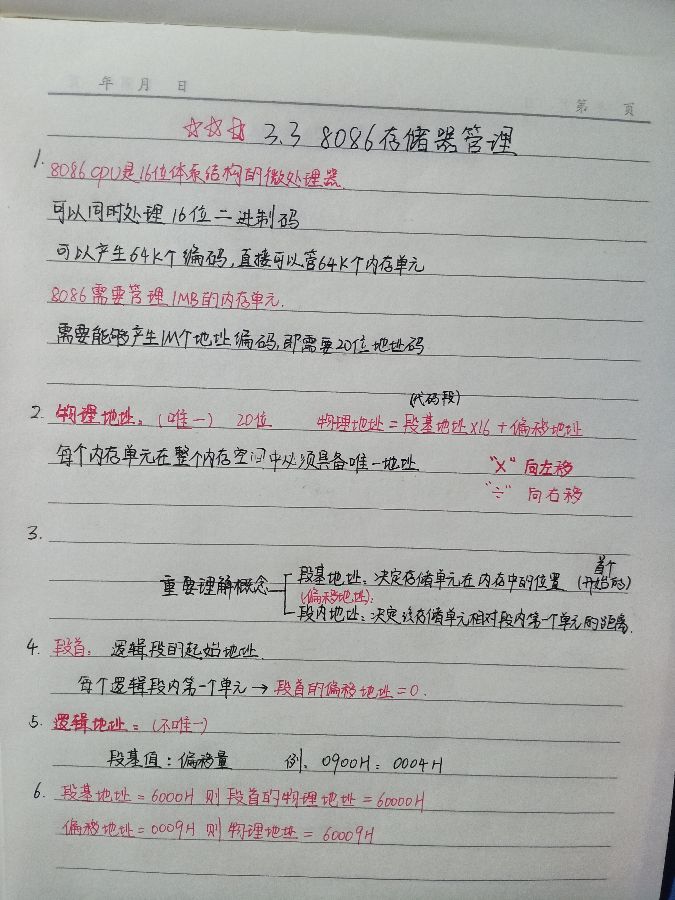 年 月 日
第 页
☆☆☆ 3.3 8086存储器管理
1. 8086 CPU是16位体系结构的微处理器
可以同时处理16位二进制码
可以产生64K个编码,直接可以管64K个内存单元
8086需要管理1MB的内存单元.
需要能够产生1M个地址编码,即需要20位地址码
(代码段)
2. 物理地址。(唯一) 20位 物理地址=段基地址×16+偏移地址
每个内存单元在整个内存空间中必须具备唯一地址 "×" 向左移
"÷" 向右移
3.
首个
重要理解概念 段基地址:决定存储单元在内存中的位置 (开始的)
(偏移地址):
段内地址:决定该存储单元相对段内第一个单元的距离.
4. 段首: 逻辑段的起始地址.
每个逻辑段内第一个单元→段首的偏移地址=0.
5. 逻辑地址:(不唯一)
段基值:偏移量 例. 0900H:0004H
6. 段基地址=6000H 则段首的物理地址=60000H
偏移地址=0009H 则物理地址=60009H